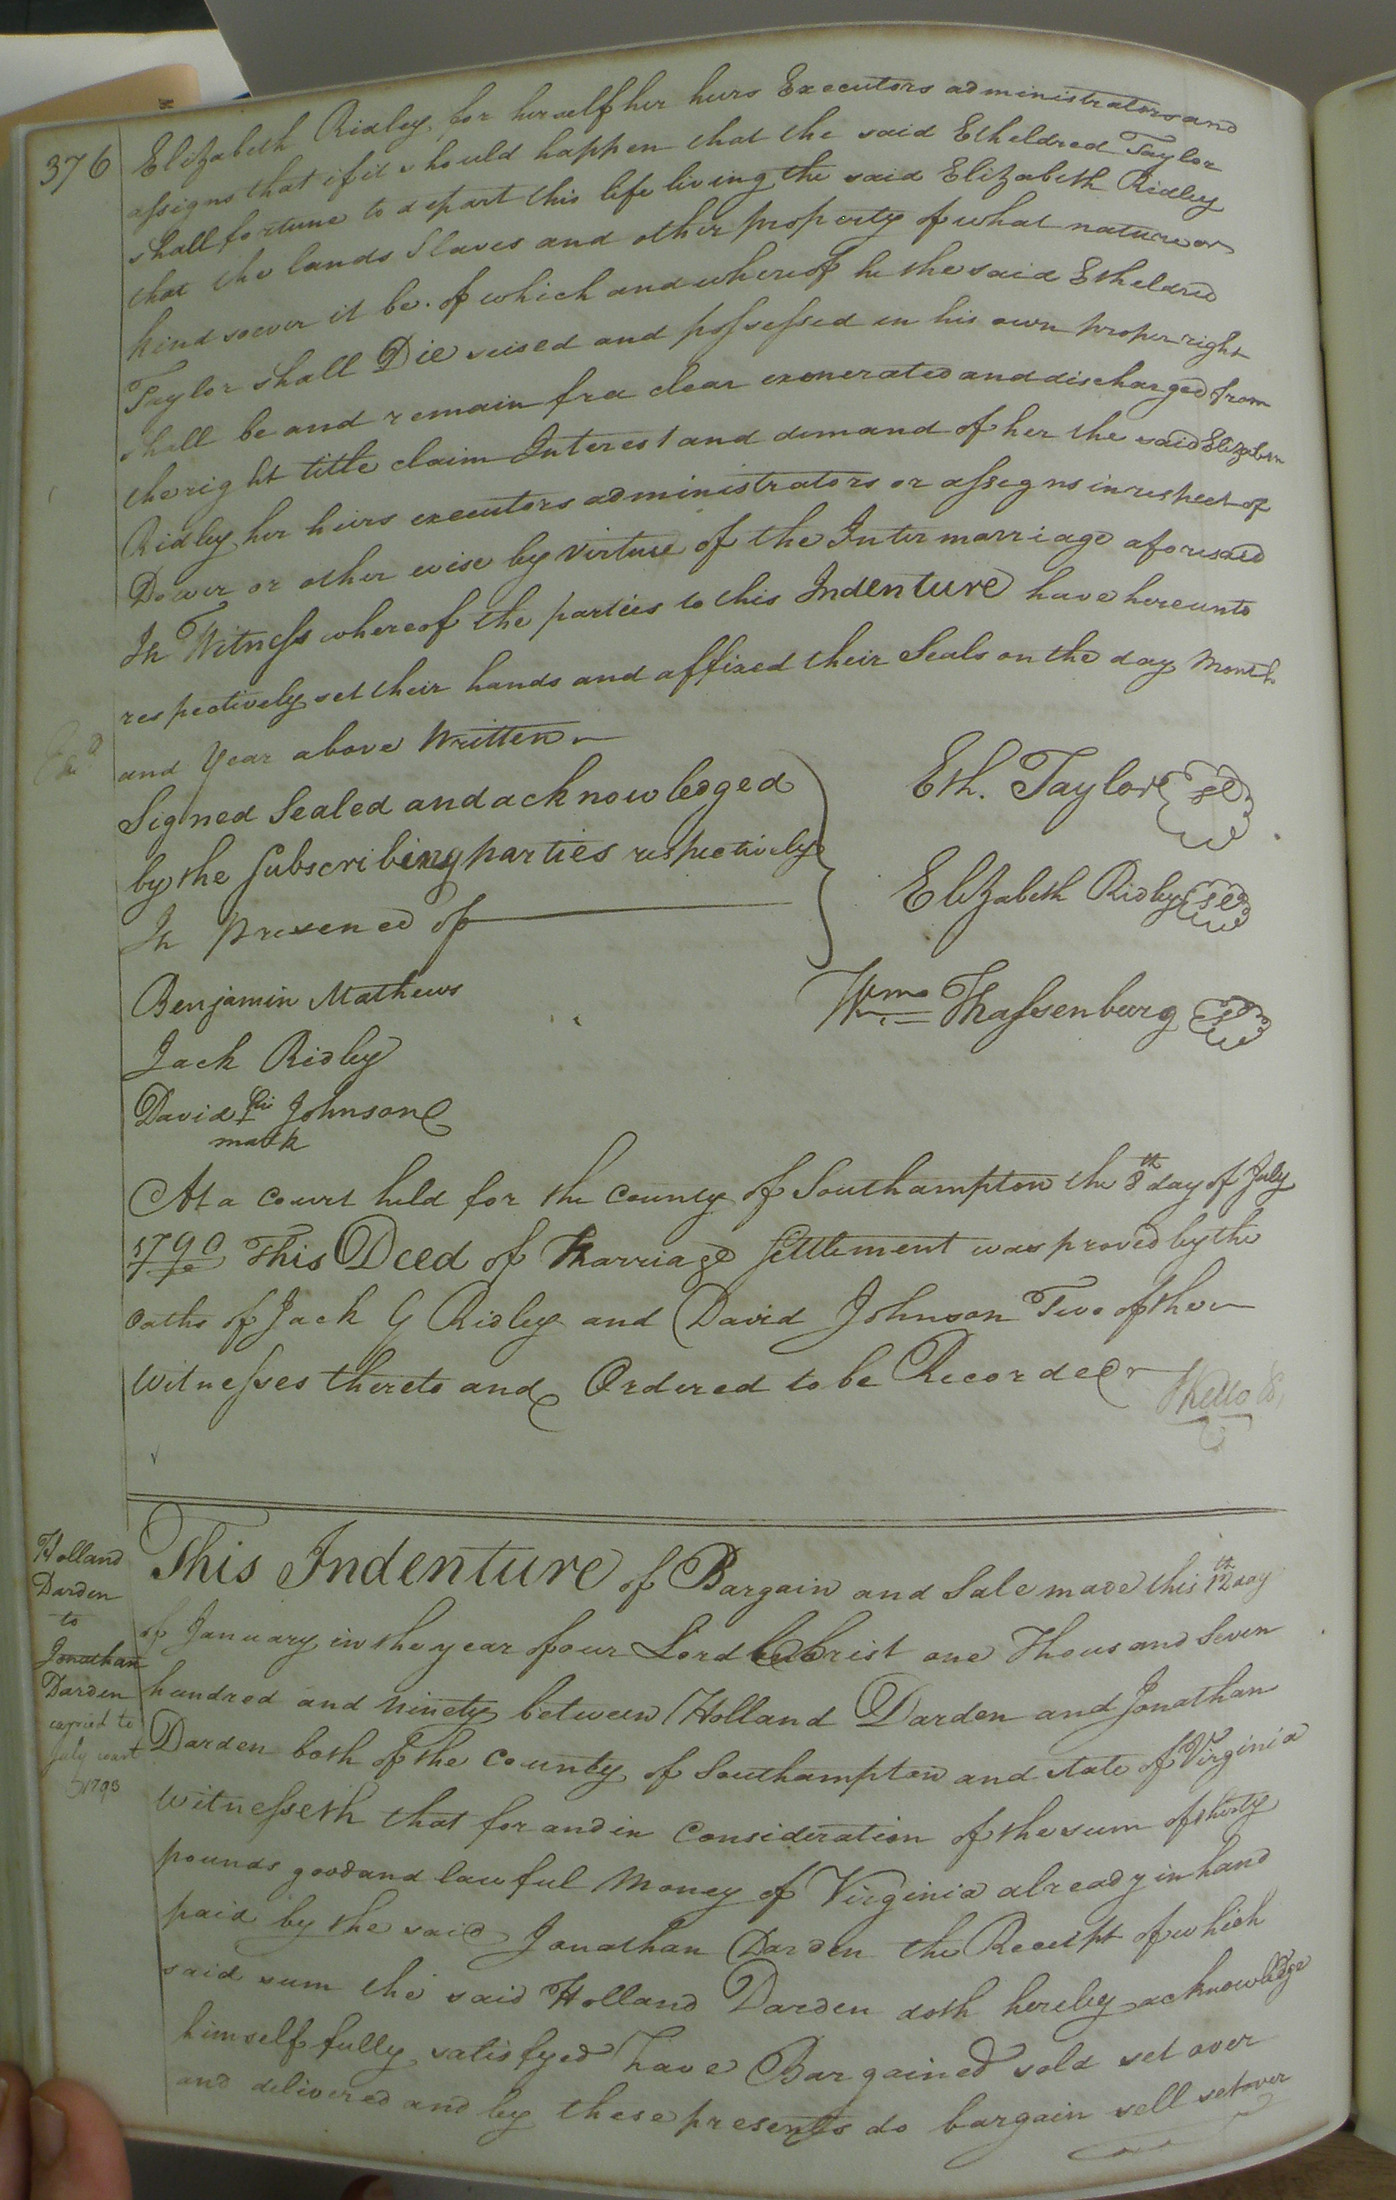 376
Elizabeth Ridley for herself her heirs Executors administrators and
assigns that if it should happen that the said Etheldred Taylor
shall fortune to depart this life living the said Elizabeth Ridley
that the lands Slaves and other property of what nature or
kind soever it be. of which and whereof he the said Etheldred
Taylor shall Die seised and possessed in his own proper right
shall be and remain free clear exonerated and discharged from
the right title claim Interest and demand of her the said Elizabeth
Ridley her heirs executors administrators or assigns in respect of
Dower or other wise by virtue of the Intermarriage aforesaid
In Witness whereof the parties to this Indenture have hereunto
respectively set their hands and affixed their Seals on the day Month
and Year above Written
Signed Sealed and acknowledged
by the Subscribing parties respectively
In presence of
Eth. Taylor
Elizabeth Ridley
Wm Thassenburg
Benjamin Mathews
Jack Ridley
David his Johnson
mark
At a court held for the county of Southampton the 8th day of July
1790 This Deed of Marriage Settlement was proved by the
oaths of Jack G Ridley and David Johnson Two of the
Witnesses thereto and Ordered to be Recorded
Holland
Darden
to
Jonathan
Darden
This Indenture of Bargain and Sale made this 12th day
of January in the year of our Lord Christ one Thousand Seven
hundred and ninety between Holland Darden and Jonathan
Darden both of the county of Southampton and state of Virginia
Witnesseth that for and in Consideration of the sum of thirty
pounds good and lawful Money of Virginia already in hand
paid by the said Jonathan Darden the Receipt of which
said sum the said Holland Darden doth hereby acknowledge
himself fully satisfyed have Bargained sold set over
and delivered and by these presents do bargain sell set over